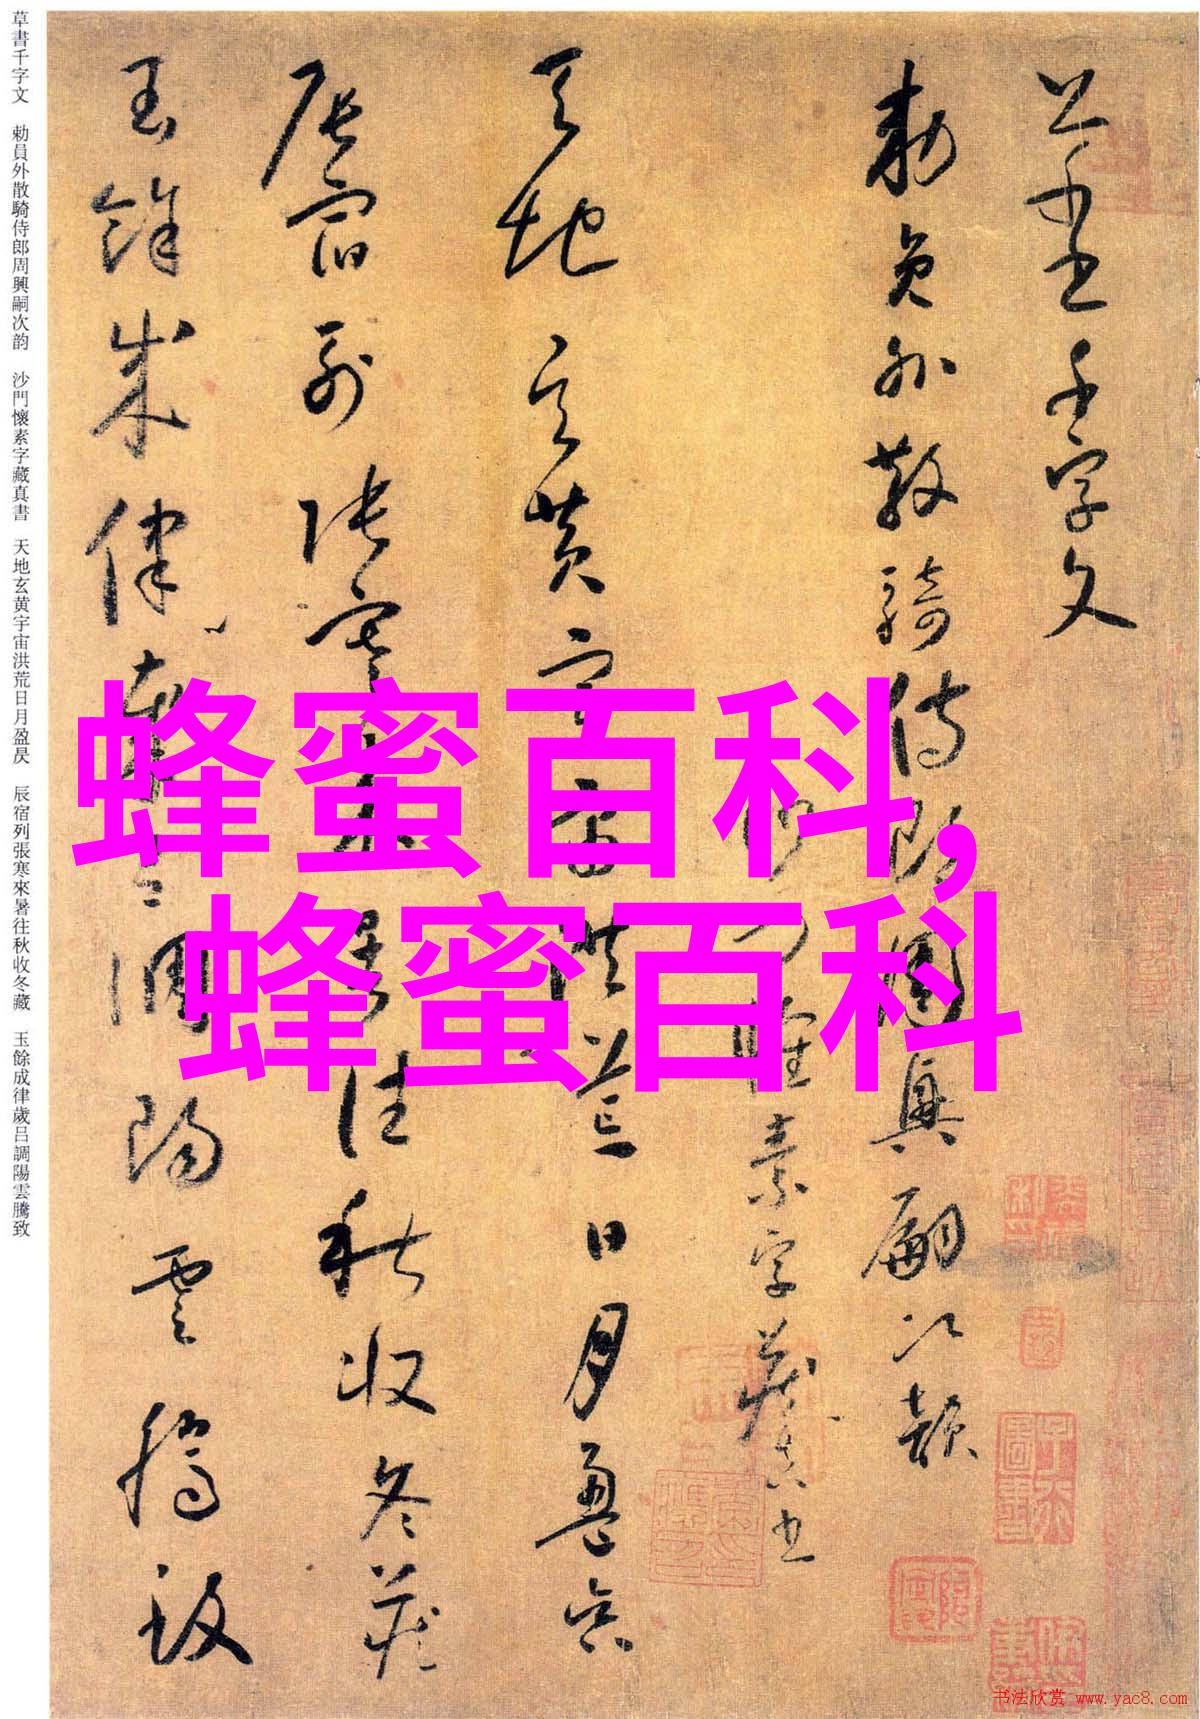 草書千字文 勅員外散騎侍郎周興嗣次韵 沙門懷素字藏真書 天地玄黄宇宙洪荒日月盈昃 辰宿列張寒來暑往秋收冬藏 玉餘成律歲吕調陽雲騰致
草書千字文
勅員外散騎侍郎周興嗣次韻
懷素字藏真書
天地玄黄宇宙洪荒日月盈昃
辰宿列張寒來暑往秋收冬藏
玉餘成律歲吕調陽雲騰致
蜂蜜百科,
蜂蜜百科
书法欣赏 www.yac8.com